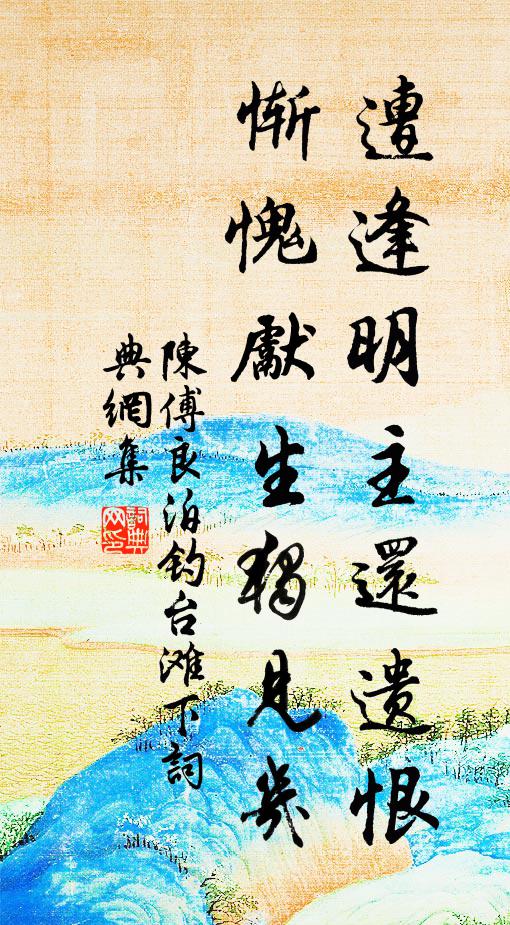 遭逢明主還遺恨
慚愧獻生獨見幾
陳傅良泊钓台滩下詞
典網集
詞典
网印